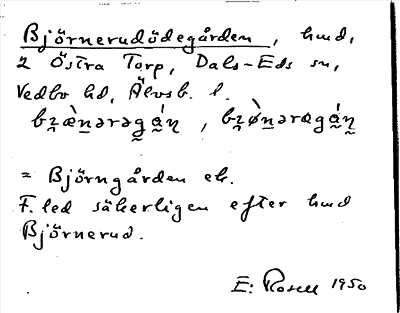 Björnerudödegården, hmd,
2 Östra Torp, Dals-Eds sn,
Vedbo hd, Älvsb. l.
= Björngården ek.
F. led säkerligen efter hmd
Björnerud.
E: Rosell 1950